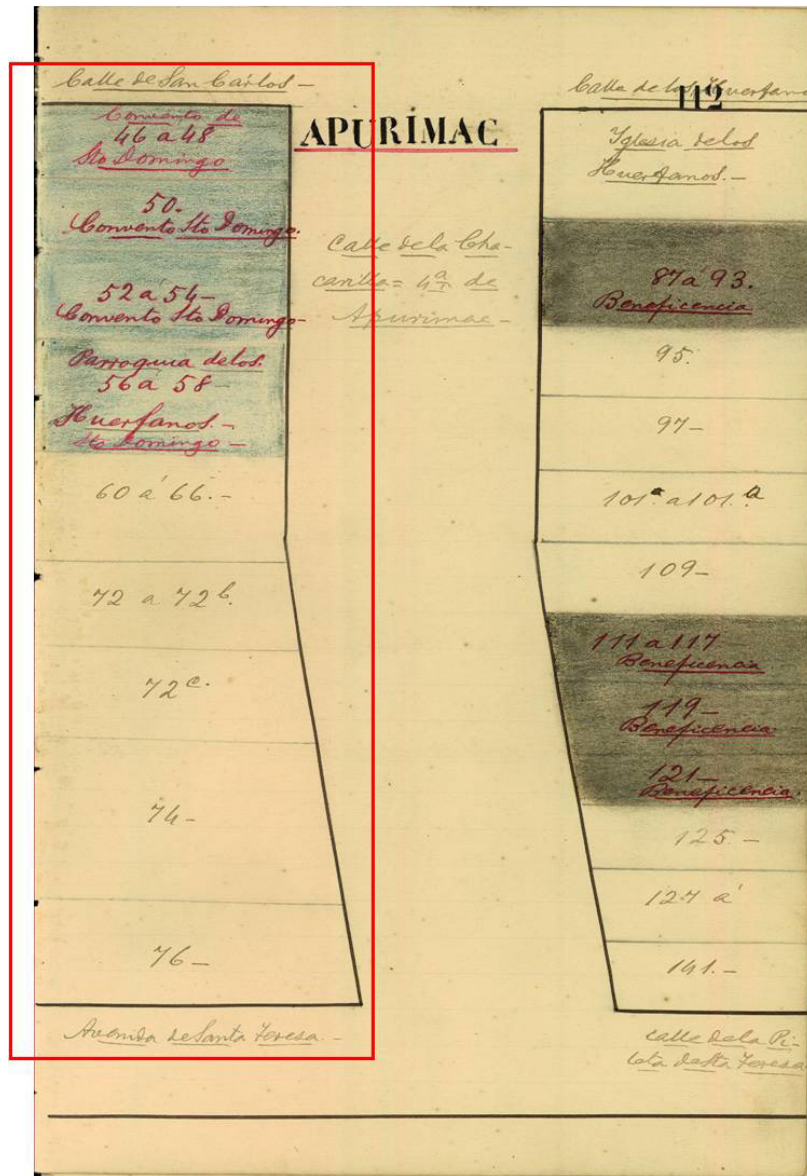 Calle de San Carlos -
Convento de
46 a 48
Sto Domingo
50.-
Convento Sto Domingo.
52 a 54-
Convento Sto Domingo-
Parroquia delos.
56 a 58-
Huerfanos.-
Sto Domingo-
60 á 66.-
72 a 72 b.
72 c.
74-
76-
Avenida de Santa Teresa.-
APURÍMAC
Calle de la Cha-
carilla = 4ª de
Apurimac-
112
Calle de los Huerfanos
Yglesia delos
Huerfanos.-
87 a 93.
Beneficencia
95.
97-
101.ª a 101.ª
109-
111 a 117
Beneficencia
119-
Beneficencia
121-
Beneficencia.
125.-
127 á
141.-
Calle dela Pi-
leta de Sta Teresa